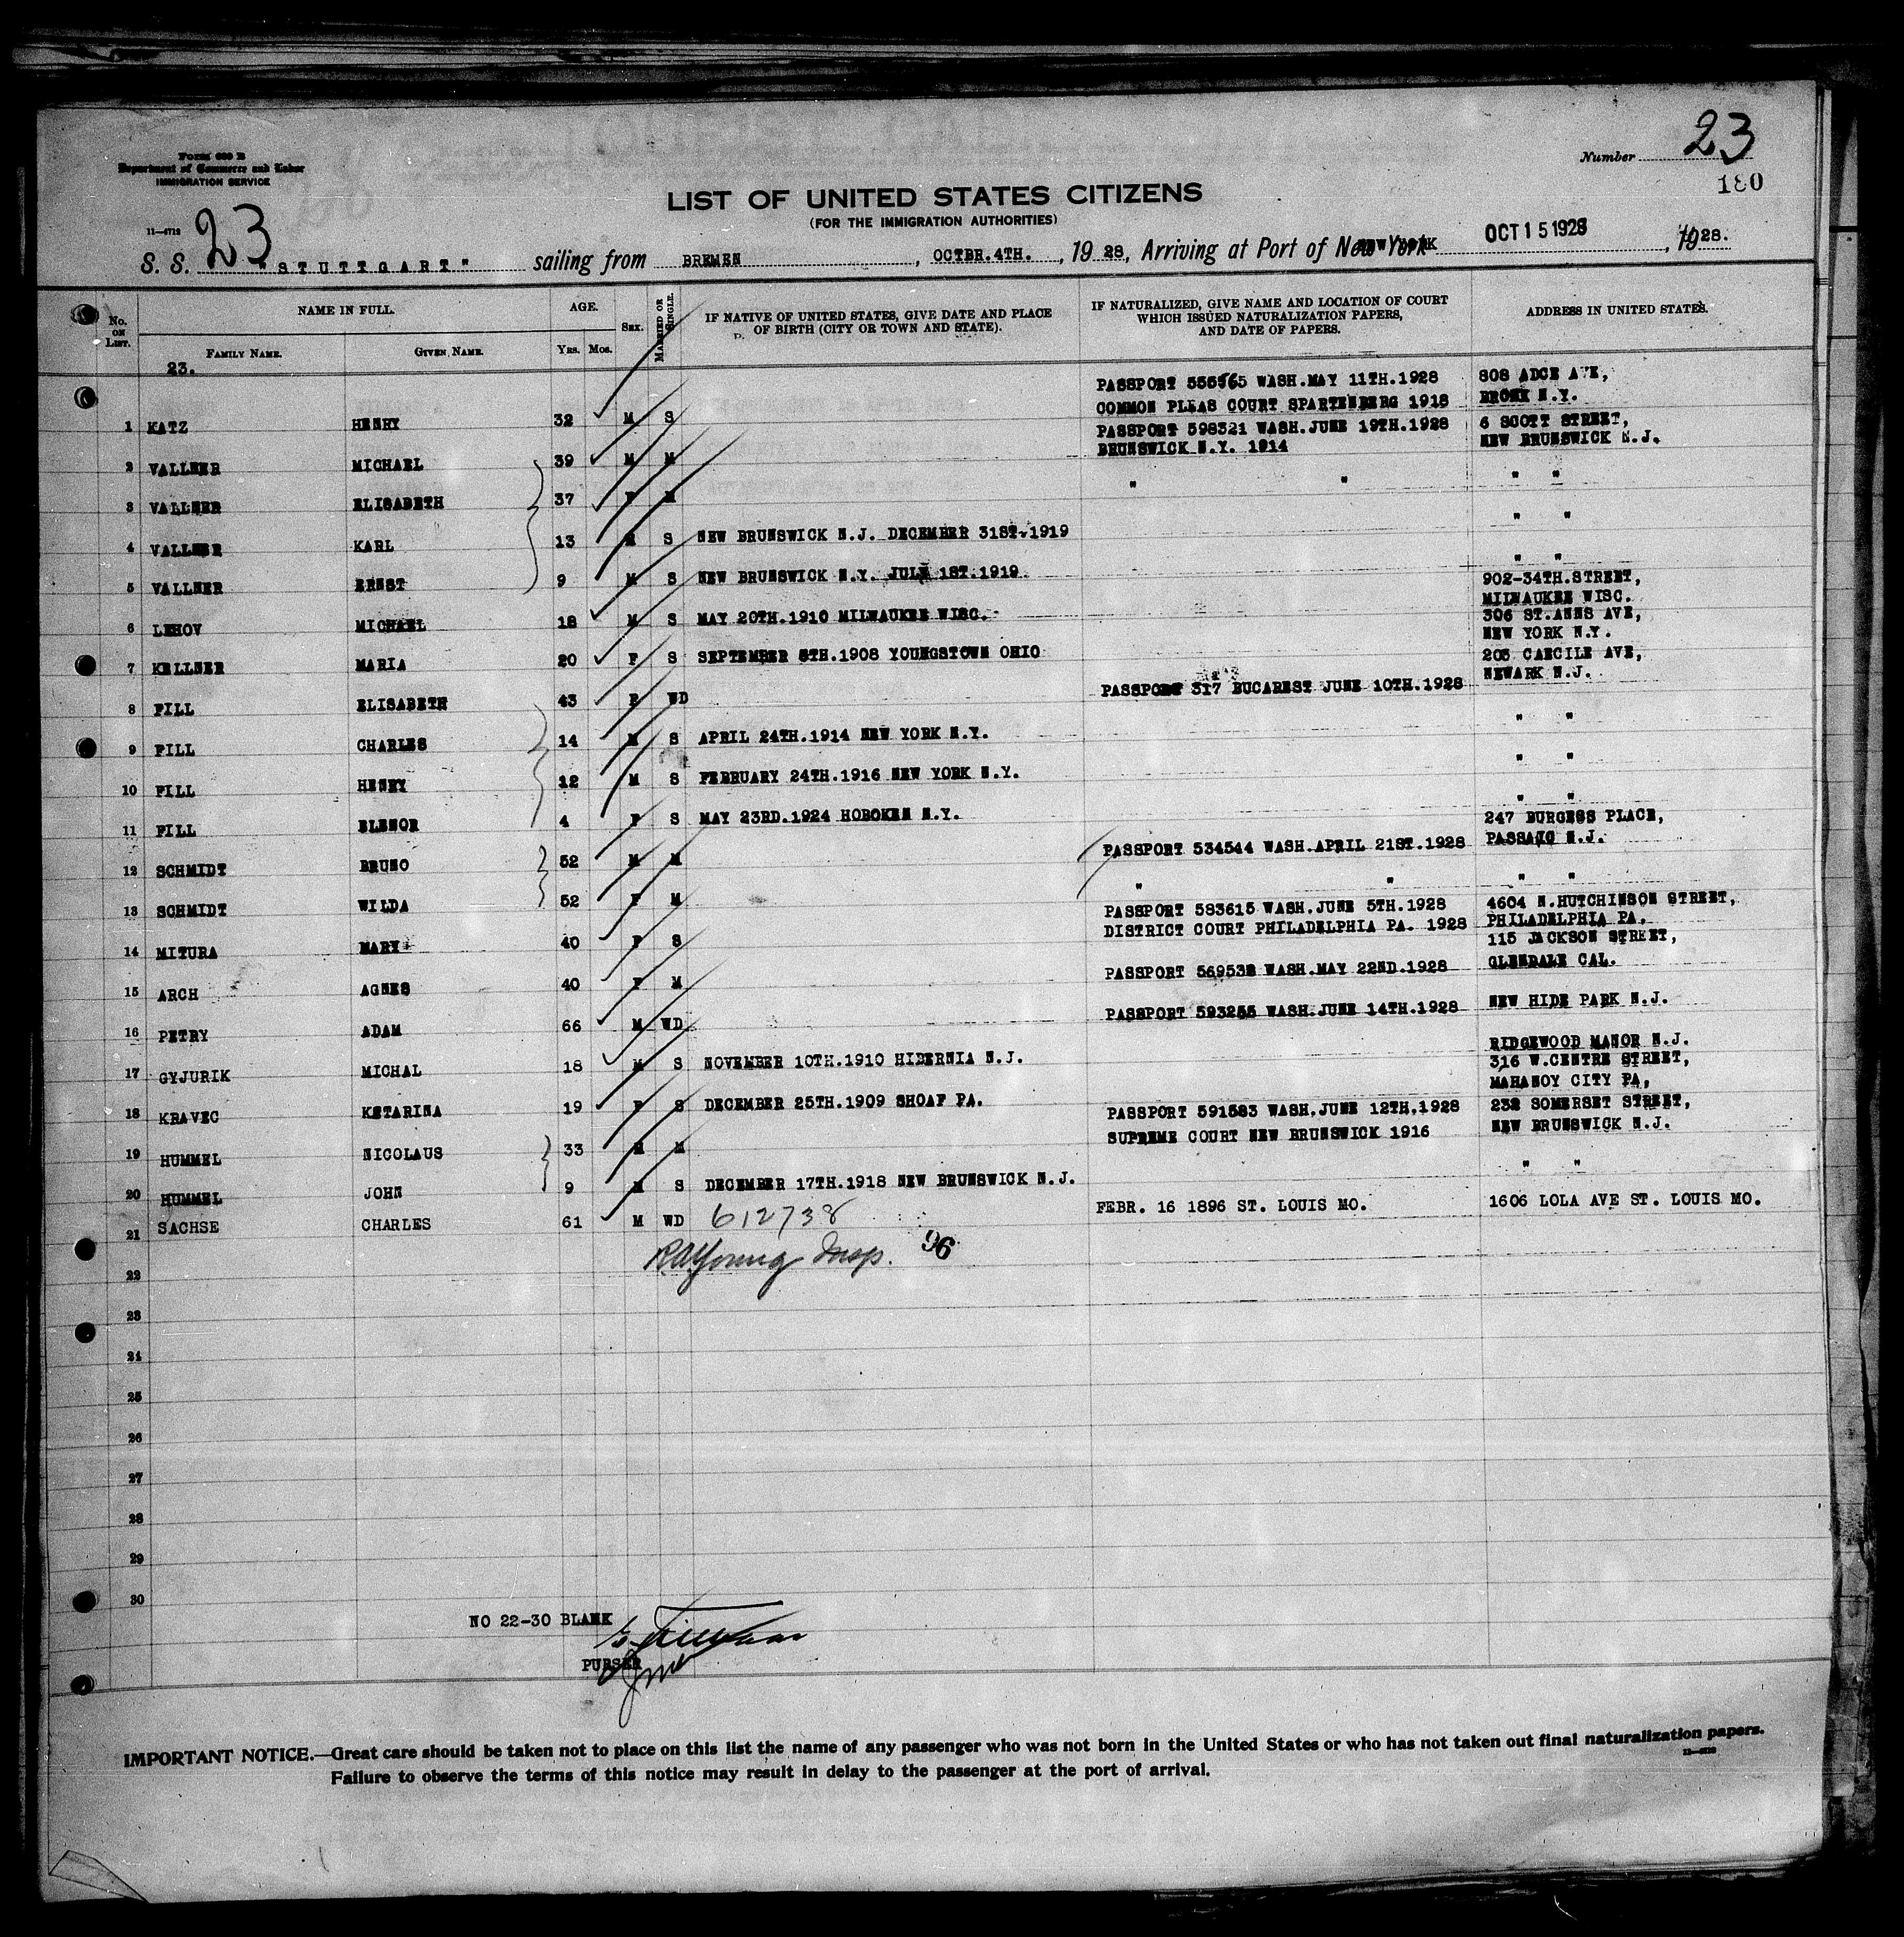 Form 630 B
Department of Commerce and Labor
IMMIGRATION SERVICE
Number 23
180
LIST OF UNITED STATES CITIZENS
(FOR THE IMMIGRATION AUTHORITIES)
11—4712
23
S. S. "STUTTGART" sailing from BREMEN, OCTBR.4TH., 1928, Arriving at Port of New York OCT 15 1928, 1928.
No. ON LIST.
NAME IN FULL.
FAMILY NAME.
GIVEN NAME.
AGE.
YRS.
MOS.
SEX.
MARRIED OR SINGLE.
IF NATIVE OF UNITED STATES, GIVE DATE AND PLACE OF BIRTH (CITY OR TOWN AND STATE).
IF NATURALIZED, GIVE NAME AND LOCATION OF COURT WHICH ISSUED NATURALIZATION PAPERS, AND DATE OF PAPERS.
ADDRESS IN UNITED STATES.
23.
1 KATZ HENRY 32 M S PASSPORT WASH.MAY 11TH.1928 COMMON PLEAS COURT SPARTENBERG 1918 808 ADCE AVE, BRONX N.Y.
2 VALLNER MICHAEL 39 M M PASSPORT 598321 WASH.JUNE 19TH.1928 BRUNSWICK N.Y. 1914 6 SCOTT STREET, NEW BRUNSWICK N.J.
3 VALLNER ELISABETH 37 F M " " " "
4 VALLNER KARL 13 M S NEW BRUNSWICK N.J. DECEMBER 31ST.1919 " "
5 VALLNER ERNST 9 M S NEW BRUNSWICK N.Y. JULY 1ST.1919 " "
6 LEHOV MICHAEL 18 M S MAY 20TH.1910 MILWAUKEE WISC. 902-34TH.STREET, MILWAUKEE WISC.
7 KELLNER MARIA 20 F S SEPTEMBER 8TH.1908 YOUNGSTOWN OHIO 306 ST.ANNS AVE, NEW YORK N.Y.
8 FILL ELISABETH 43 F WD PASSPORT 317 BUCAREST JUNE 10TH.1928 203 CAECILE AVE, NEWARK N.J.
9 FILL CHARLES 14 M S APRIL 24TH.1914 NEW YORK N.Y. " "
10 FILL HENRY 12 M S FEBRUARY 24TH.1916 NEW YORK N.Y. " "
11 FILL ELENOR 4 F S MAY 23RD.1924 HOBOKEN N.Y. " "
12 SCHMIDT BRUNO 52 M M PASSPORT 534544 WASH.APRIL 21ST.1928 247 BURGESS PLACE, PASSAIC N.J.
13 SCHMIDT WILDA 52 F M " " " "
14 MITURA MARY 40 F S PASSPORT 583615 WASH.JUNE 5TH.1928 DISTRICT COURT PHILADELPHIA PA. 1928 4604 N.HUTCHINSON STREET, PHILADELPHIA PA.
15 ARCH AGNES 40 F M PASSPORT 569532 WASH.MAY 22ND.1928 115 JACKSON STREET, GLENDALE CAL.
16 PETRY ADAM 66 M WD PASSPORT 593255 WASH.JUNE 14TH.1928 NEW HIDE PARK N.J.
17 GYJURIK MICHAL 18 M S NOVEMBER 10TH.1910 HIBERNIA N.J. RIDGEWOOD MANOR N.J.
18 KRAVEC KETARINA 19 F S DECEMBER 25TH.1909 SHOAF PA. 316 W.CENTRE STREET, MAHANOY CITY PA,
19 HUMMEL NICOLAUS 33 M M PASSPORT 591583 WASH.JUNE 12TH.1928 SUPREME COURT NEW BRUNSWICK 1916 232 SOMERSET STREET, NEW BRUNSWICK N.J.
20 HUMMEL JOHN 9 M S DECEMBER 17TH.1918 NEW BRUNSWICK N.J. " "
21 SACHSE CHARLES 61 M WD 612738 FEBR. 16 1896 ST. LOUIS MO. 1606 LOLA AVE ST. LOUIS MO.
22 RAYoung Insp. 96
23
24
25
26
27
28
29
30
NO 22-30 BLANK
PURSER
IMPORTANT NOTICE.—Great care should be taken not to place on this list the name of any passenger who was not born in the United States or who has not taken out final naturalization papers.
Failure to observe the terms of this notice may result in delay to the passenger at the port of arrival.